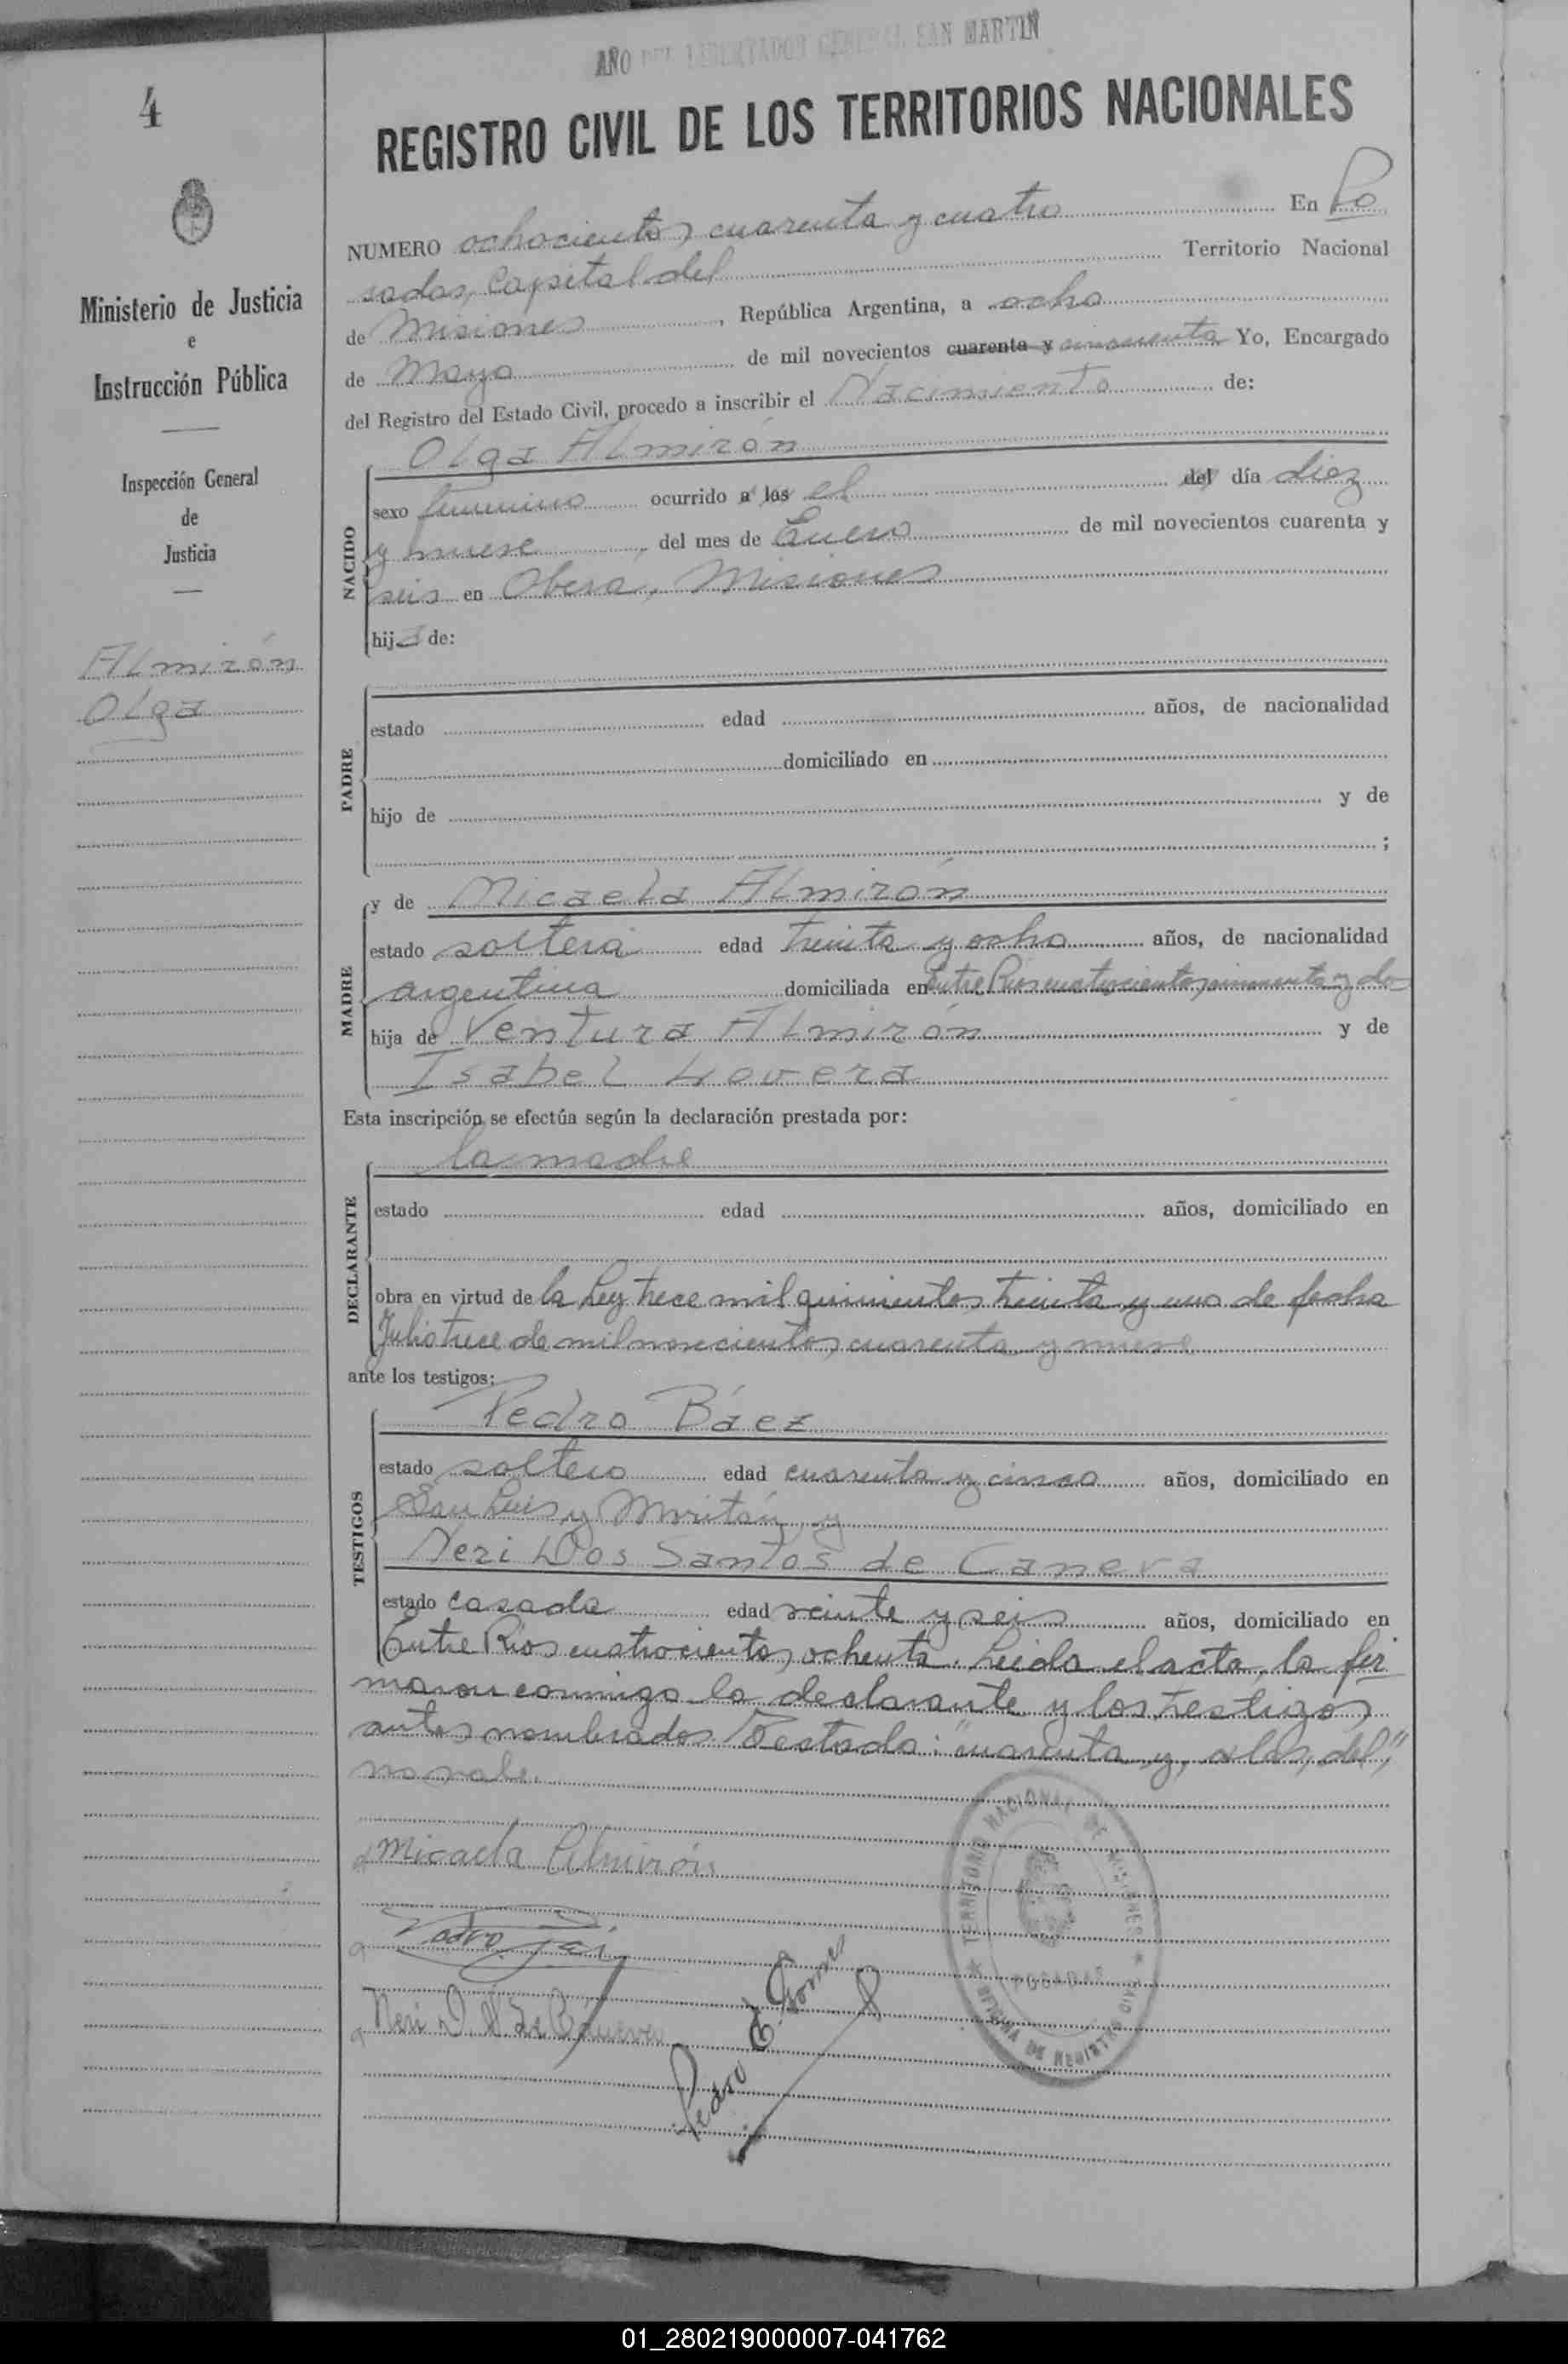 AÑO DEL LIBERTADOR GENERAL SAN MARTIN
4
REGISTRO CIVIL DE LOS TERRITORIOS NACIONALES
Ministerio de Justicia
e
Instrucción Pública
Inspección General
de
Justicia
Almirón
Olga
NUMERO ochocientos cuarenta y cuatro En Po
sadas, Capital del Territorio Nacional
de Misiones, República Argentina, a ocho
de Mayo de mil novecientos cuarenta y cincuenta Yo, Encargado
del Registro del Estado Civil, procedo a inscribir el Nacimiento de:
NACIDO
Olga Almirón
sexo femenino ocurrido a las el del día diez
y nueve, del mes de Enero de mil novecientos cuarenta y
seis en Oberá, Misiones
hija de:
PADRE
estado edad años, de nacionalidad
domiciliado en
hijo de y de
;
MADRE
y de Micaela Almirón
estado soltera edad treinta y ocho años, de nacionalidad
argentina domiciliada en Entre Rios cuatrocientos cincuenta y dos
hija de Ventura Almirón y de
Isabel Lovera
Esta inscripción se efectúa según la declaración prestada por:
DECLARANTE
la madre
estado edad años, domiciliado en
obra en virtud de la Ley trece mil quinientos treinta y uno de fecha
Julio trece de mil novecientos cuarenta y nueve
ante los testigos:
TESTIGOS
Pedro Báez
estado soltero edad cuarenta y cinco años, domiciliado en
San Luis y y
Neri Dos Santos de Caneva
estado casada edad veinte y seis años, domiciliado en
Entre Rios cuatrocientos ochenta. Leida el acta, la fir
maron conmigo la declarante y los testigos
antes nombrados. Testado: "cuarenta y, a las, del,"
no vale.
Micaela Almirón
Neri D. S. de Caneva
Pedro E. Gomes
TERRITORIO NACIONAL DE MISIONES
POSADAS
OFICINA DE REGISTRO CIVIL
01_280219000007-041762